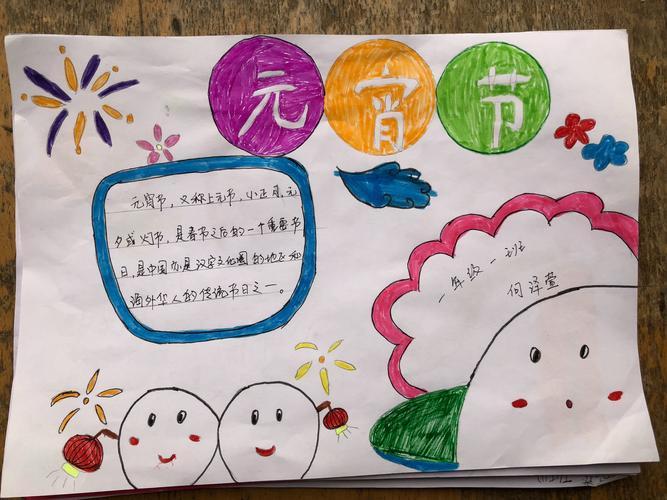 元宵节
元宵节，又称上元节，小正月，元
夕或灯节，是春节之后的一个重要节
日，是中国亦是汉字文化圈的地区和
海外华人的传统节日之一。
一年级一班
何泽萱